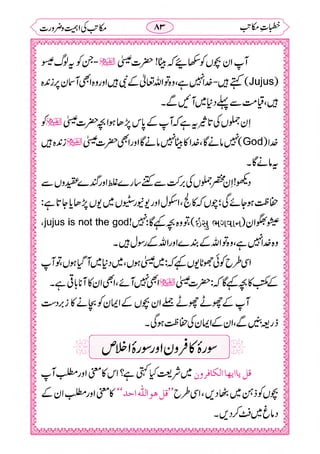 خطباتِ مکاتب ۸۳ مکاتب کی اہمیت وضرورت
آپ ان بچوں کو سکھاؤ کہ بیٹا! حضرت عیسیٰ علیہ السلام - جن کو یہ لوگ عیسو
(Jujus) کہتے ہیں - خدا نہیں ہے، وہ تو اللہ تعالیٰ کے نبی ہیں اور وہ ابھی آسمان پر زندہ
ہیں، قیامت سے پہلے دنیا میں آئیں گے۔
ان جملوں کی یہ تاثیر ہے کہ آپ کے پاس پڑھا ہوا بچہ حضرت عیسیٰ علیہ السلام کو
خدا (God) نہیں مانے گا، خدا کا بیٹا نہیں مانے گا اور ابھی حضرت عیسیٰ علیہ السلام زندہ ہیں
یہ مانے گا۔
دیکھو! اِن مختصر جملوں کی برکت سے کتنے سارے غلط اور گندے عقیدوں سے
حفاظت ہو جائے گی؛ کیوں کہ کالج، اسکول اور یونیورسٹیوں میں یوں پڑھایا جاتا ہے:
عیسو بھگوان ہے تو وہ بچہ کہے گا: نہیں! jujus is not the god,
وہ خدا نہیں ہے، وہ تو اللہ کے بندے اور اللہ کے رسول ہیں۔
اسی طرح کوئی جھوٹا یوں کہے کہ: میں عیسیٰ ہوں، میں دنیا میں آ گیا ہوں، تو آپ
کے مکتب کا بچہ کہے گا کہ: حضرت عیسیٰ علیہ السلام ابھی نہیں آئے، ابھی ان کا آنا باقی ہے۔
آپ کے چھوٹے چھوٹے جملے ان بچوں کے ایمان کو بچانے کا زبردست
ذریعہ بنیں گے، ان کے ایمان کی حفاظت ہوگی۔
سورۂ کافرون اور سورۂ اخلاص
قل یاایھا الکافرون میں شریعت کیا کہتی ہے؟ اس کا معنیٰ اور مطلب آپ
بچوں کو ذہن میں بٹھا دیں، اسی طرح ”قل ھو اللہ احد“ کا معنیٰ اور مطلب ان کے
دماغ میں فٹ کر دیں۔